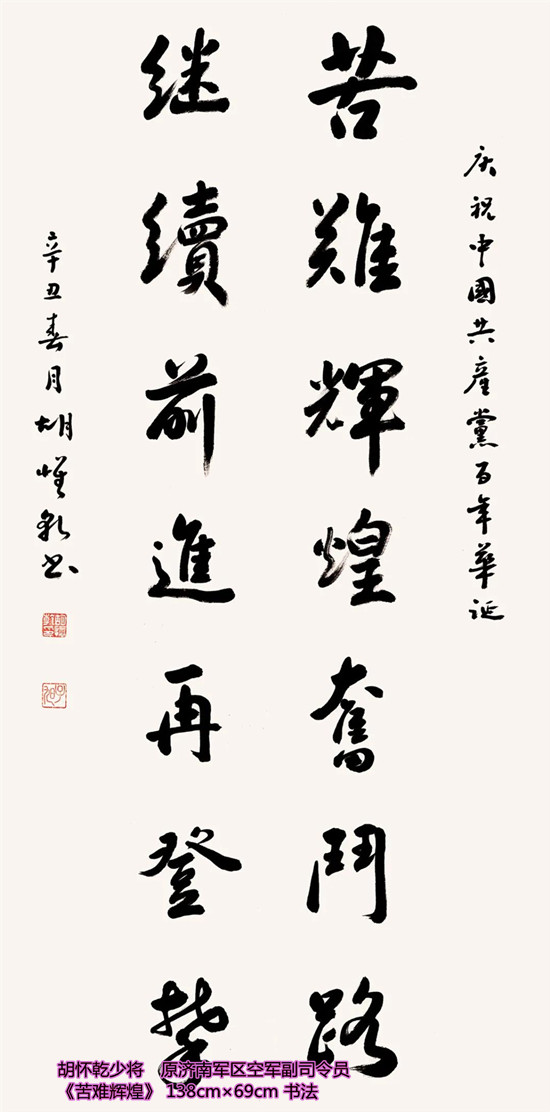 庆祝中國共產黨百年華诞
苦難輝煌奮鬥路
继續前進再登攀
辛丑春月胡懷乾书
胡怀乾少将 原济南军区空军副司令员
《苦难辉煌》 138cm×69cm 书法